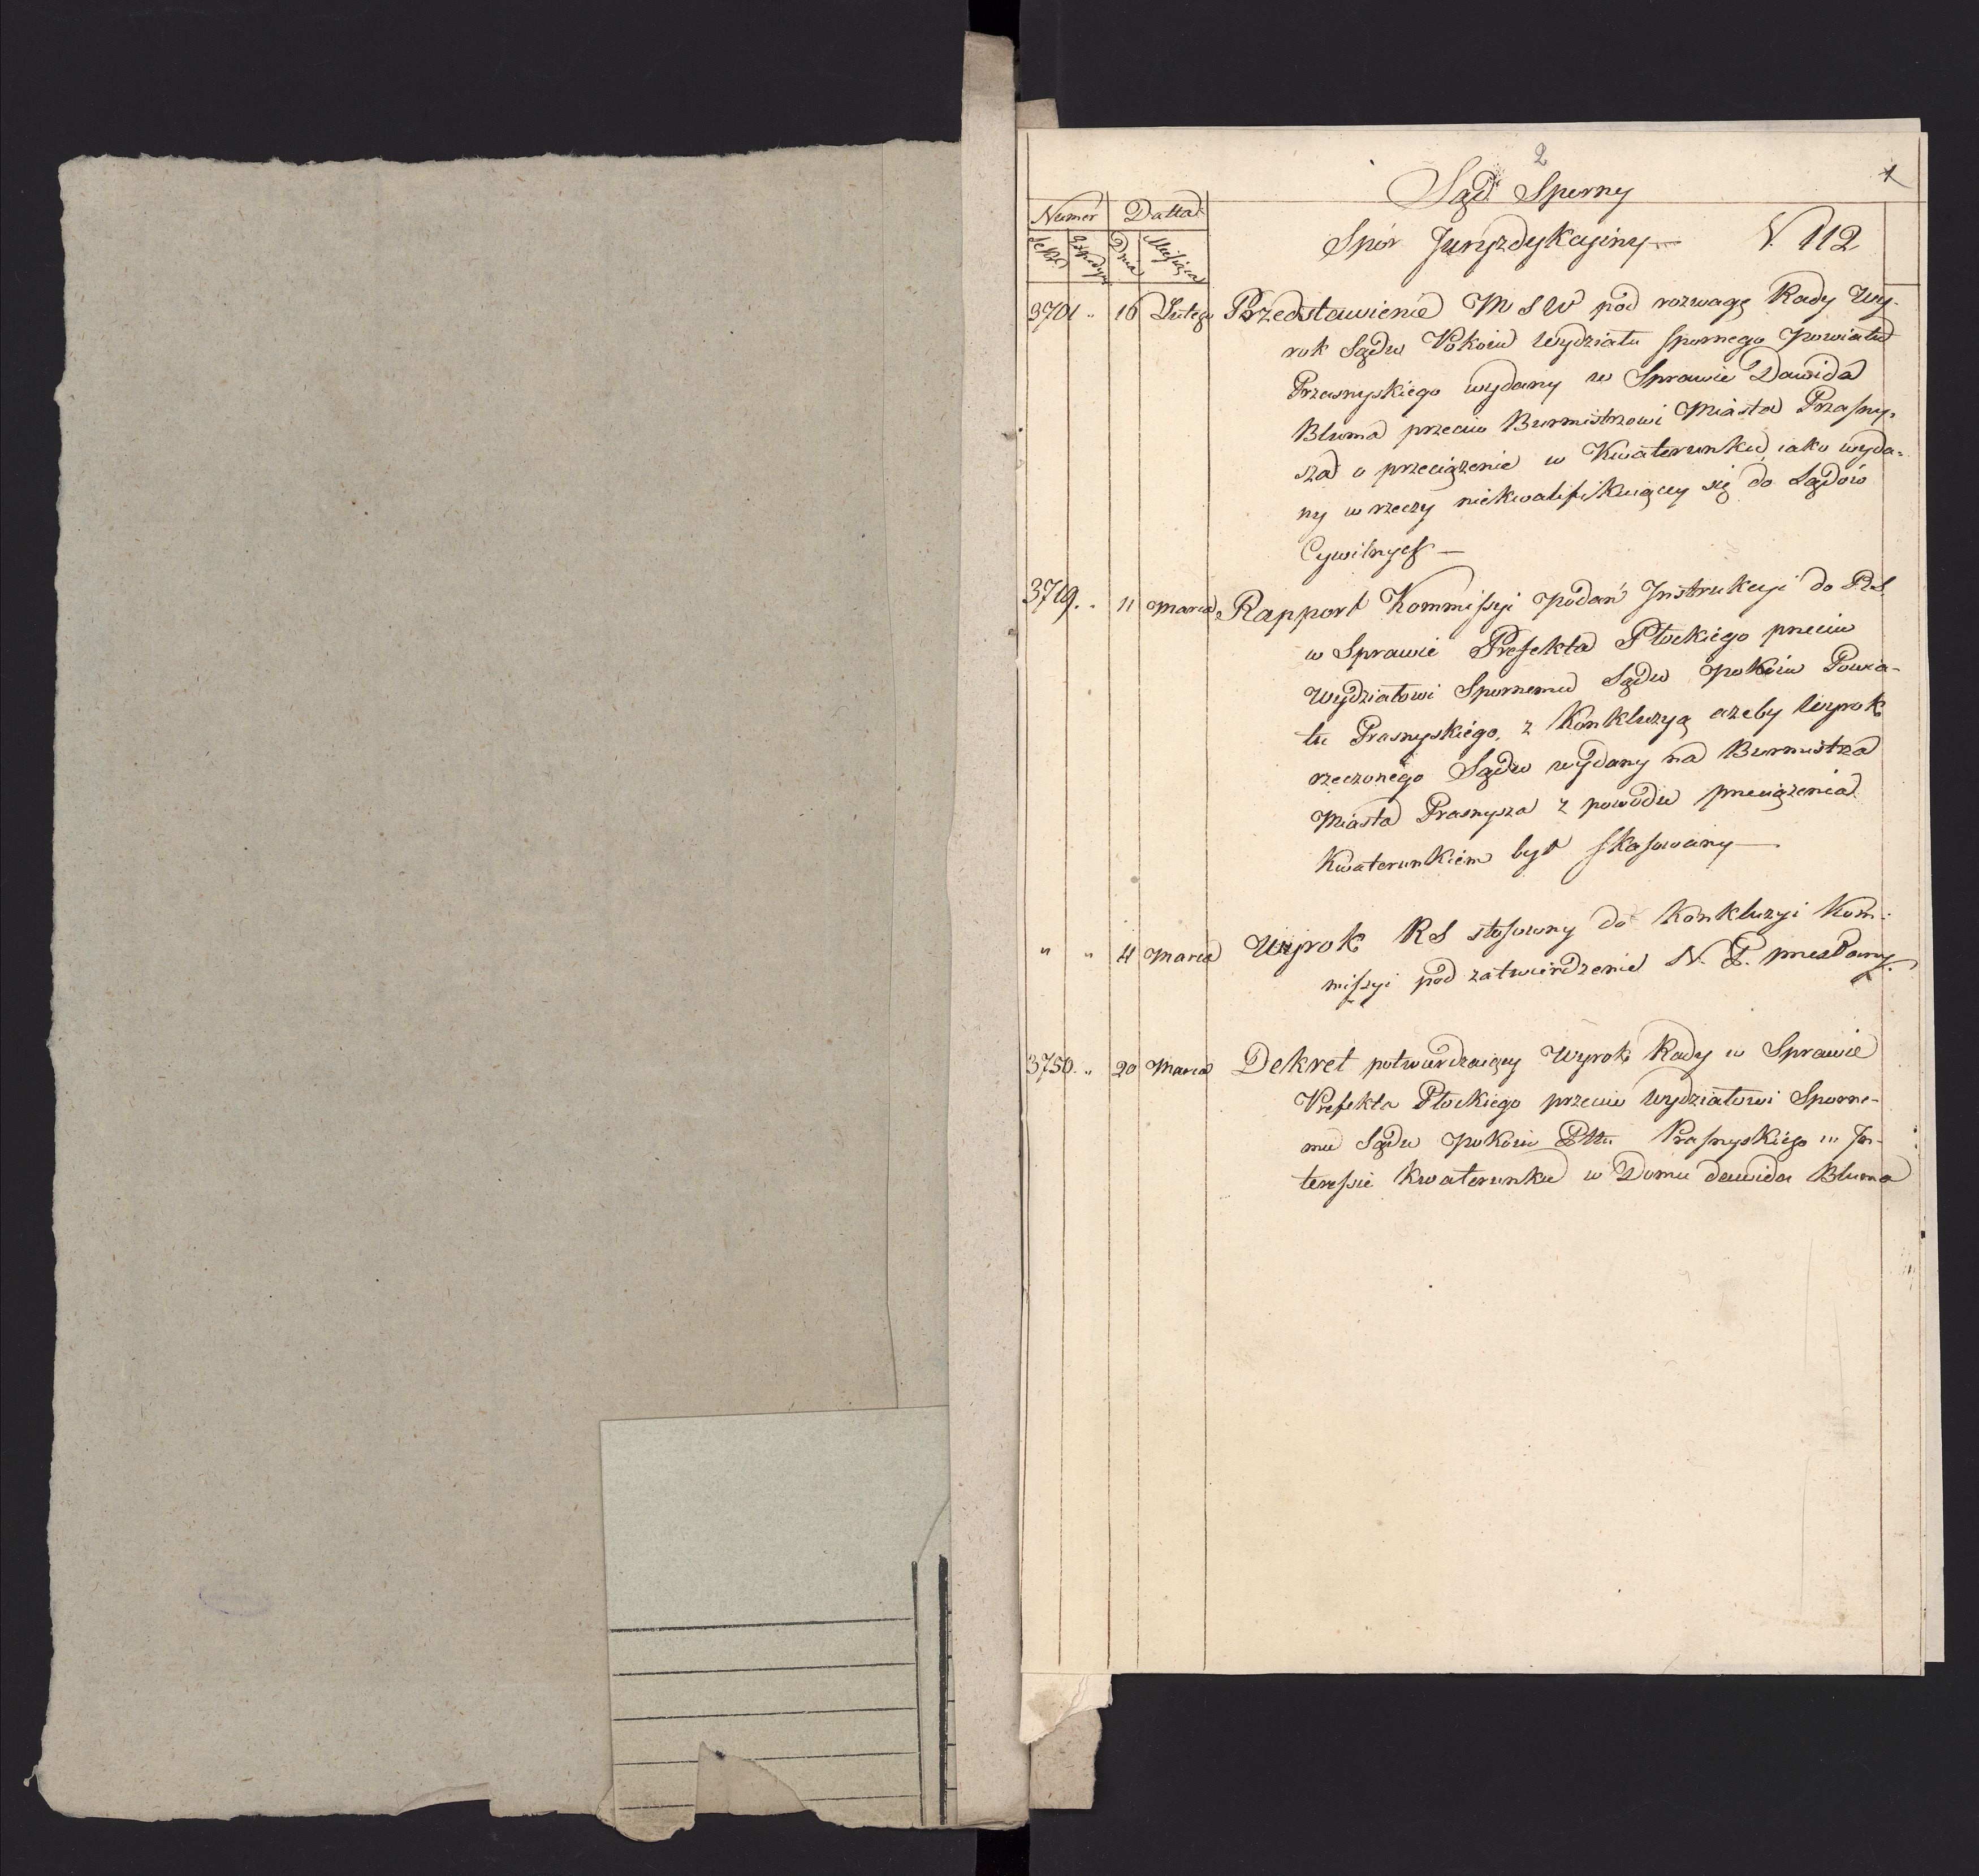 2
1
Sąd Sporny
Numer Datta
Spór Juryzdykcyiny N. 112
Sekr. Expedyc. Dnia Miesiąca
3701 " 16 Lutego Przedstawienie M S W pod rozwagę Rady Wy-
rok Sądu Pokoiu Wydziału spornego Powiatu
Przasnyskiego wydany w Sprawie Dawida
Bluma przeciw Burmistrzowi Miasta Przasny-
sza o przeciążenie w Kwaterunku, iako wyda-
ny w rzeczy niekwalifikuiący się do Sądów
Cywilnych —
3719. " 11 Marca Rapport Kommissyi Podań Instrukcyi do R.S.
w Sprawie Prefekta Płockiego przeciw
Wydziałowi Spornemu Sądu Pokoiu Powia-
tu Prasnyskiego, z Konkluzyą ażeby Wyrok
rzeczonego Sądu wydany na Burmistrza
Miasta Prasnysza z powodu przeciążenia
Kwaterunkiem był skasowany —
" " 11 Marca Wyrok RS stosowny do Konkluzyi Kom-
missyi pod zatwierdzenie N. P. przesłany.
3750. " 20 Marca Dekret potwierdzaiący Wyrok Rady w Sprawie
Prefekta Płockiego przeciw Wydziałowi Sporne-
mu Sądu Pokoiu Pttu Prasnyskiego w In-
teressie Kwaterunku w Domu Dawida Bluma